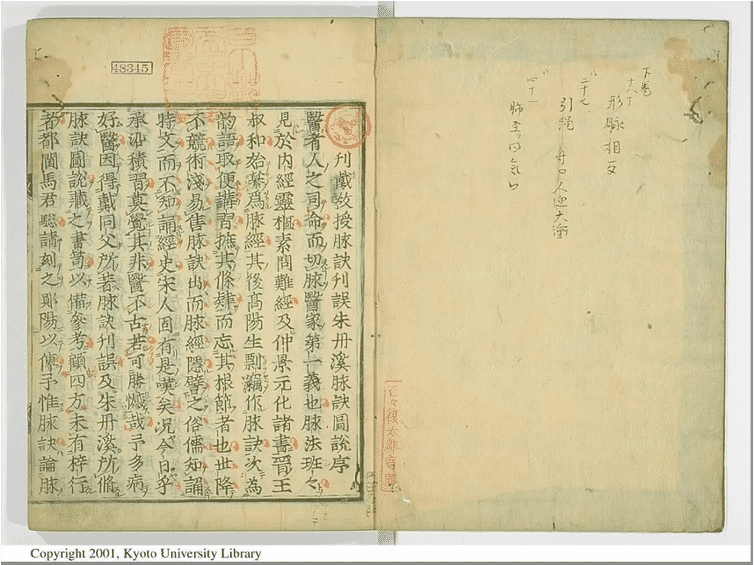 下巻
十八丁
形脉相反
二十七
引繩
四十一
48345
刊戴教授脉訣刊誤朱丹溪脉訣圖說序
醫者人之司命而切脉醫家第一義也脉法班々
見於內經靈樞素問難經及仲景元化諸書晉王
叔和始纂爲脉經其後高陽生剽竊作脉訣次為
韵語取便講習摭其條肄而忘其根節者也世降
不競術淺易售脉訣出而脉經隱譬之俗儒知誦
時文而不知誦經史宋人固有是嘆矣况今日乎
承沿積習莫覺其非醫不古若可勝慨哉予多病
好醫因得戴同父所著脉訣刊誤及朱丹溪所脩
脉訣圖說藏之書笥以備參考顧四方未有梓行
者都閫馬君聰請刻之鄖陽以傳予惟脉訣論脉
Copyright 2001, Kyoto University Library